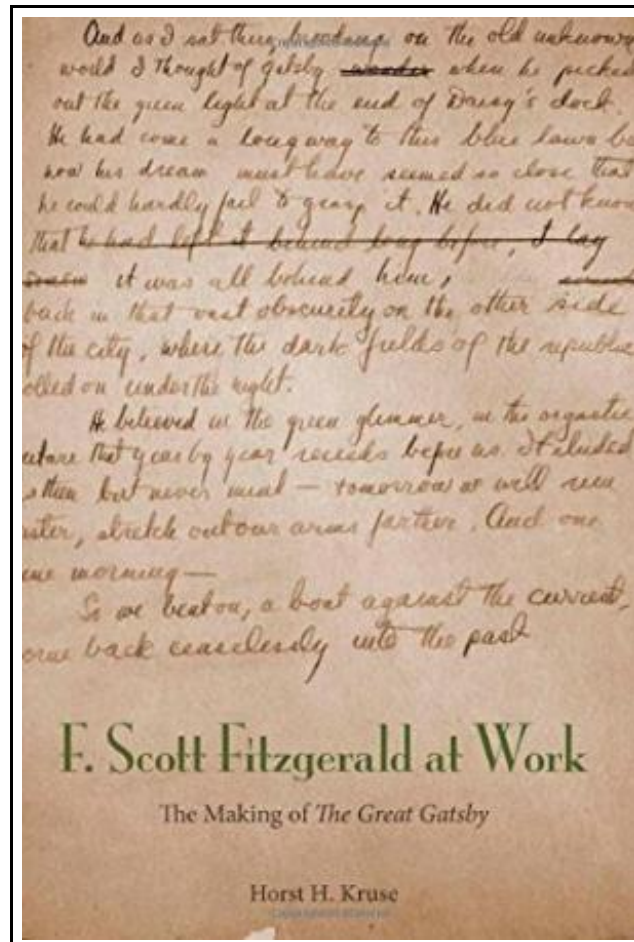 And as I sat there brooding on the old unknown
world I thought of Gatsby when he picked
out the green light at the end of Daisy's dock.
He had come a long way to this blue lawn
now his dream must have seemed so close that
he could hardly fail to grasp it. He did not know
that he had left it behind long before, I lay
it was all behind him,
back in that vast obscurity on the other side
of the city, where the dark fields of the republic
olled on under the night.
He believed in the green glimmer, in the
uture that year by year recedes before us. It eluded
s then but never mind — tomorrow we will run
aster, stretch out our arms farther. And one
ine morning—
So we beat on, a boat against the current,
orne back ceaselessly into the past
F. Scott Fitzgerald at Work
The Making of The Great Gatsby
Horst H. Kruse